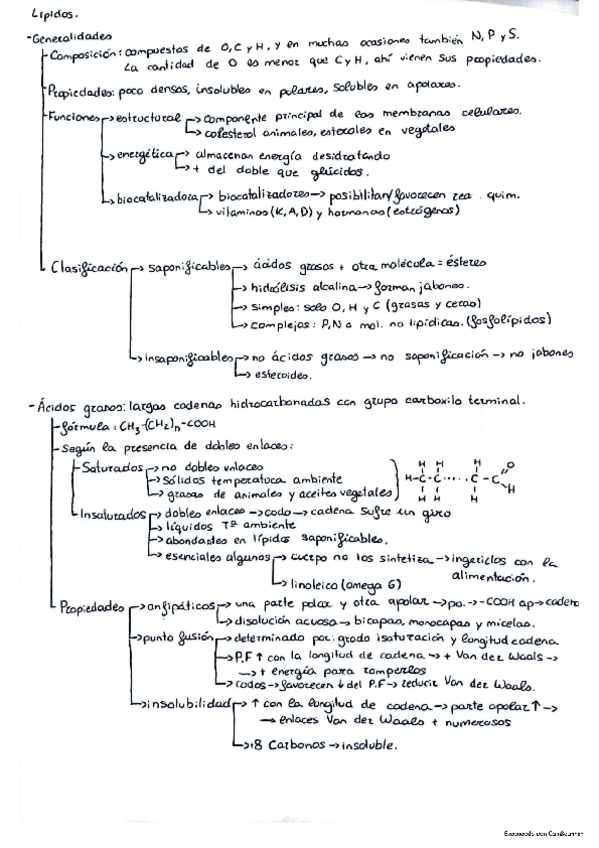 Lípidos.
-Generalidades
Composición: compuestos de O, C y H, y en muchas ocasiones también N, P y S.
La cantidad de O es menor que C y H, ahí vienen sus propiedades.
Propiedades: poco densos, insolubles en polares, solubles en apolares.
Funciones → estructural → componente principal de las membranas celulares.
→ colesterol animales, esteroles en vegetales
→ energética → almacenan energía desidratando
→ + del doble que glúcidos.
→ biocatalizadora → biocatalizadores → posibilitan/favorecen rea . quim.
→ vitaminas (K, A, D) y hormonas (estrógenos)
Clasificación → saponificables → ácidos grasos + otra molécula = ésteres
→ hidrólisis alcalina → forman jabones.
→ simples: solo O, H y C (grasas y ceras)
→ complejos: P, N o mol. no lipídicas. (fosfolípidos)
→ insaponificables → no ácidos grasos → no saponificación → no jabones
→ esteroides.
- Ácidos grasos: largas cadenas hidrocarbonadas con grupo carboxilo terminal.
fórmula: CH3-(CH2)n-COOH
Según la presencia de dobles enlaces:
Saturados → no dobles enlaces
→ Sólidos temperatura ambiente
→ grasas de animales y aceites vegetales
H H H O
H-C-C.....C-C
H H H H
Insaturados → dobles enlaces → codo → cadena sufre un giro
→ líquidos Tª ambiente
→ abondantes en lípidos saponificables.
→ esenciales algunos → cuerpo no los sintetiza → ingerirlos con la
alimentación.
→ linoleico (omega 6)
Propiedades → anfipáticos → una parte polar y otra apolar → po. → -COOH ap → cadena
→ disolución acuosa → bicapas, monocapas y micelas.
→ punto fusión → determinado por: grado isaturación y longitud cadena
→ P.F ↑ con la longitud de cadena → + Van der Waals →
→ + energía para romperlos
→ codos → favorecen ↓ del P.F → reducir Van der Waals.
→ insolubilidad → ↑ con la longitud de cadena → parte apolar ↑ →
→ enlaces Van der Waals + numerosos
→ >8 Carbonos → insoluble.
Escaneado con CamScanner